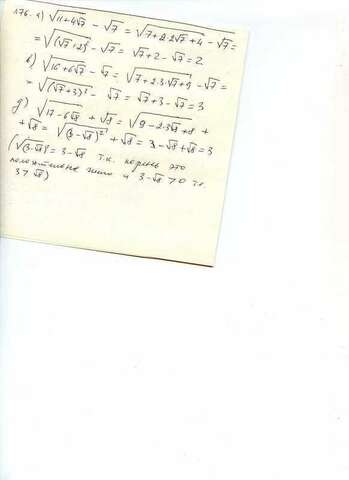 176. а) √11+4√7 - √7 = √7+2·2√7+4 - √7 =
= √(√7+2)² - √7 = √7+2 - √7 = 2
в) √16+6√7 - √7 = √7+2·3·√7+9 - √7 =
= √(√7+3)² - √7 = √7+3-√7 = 3
д) √17-6√8 + √8 = √9-2·3√8+8 +
+ √8 = √(3-√8)² + √8 = 3-√8+√8 = 3
(√(3-√8)² = 3-√8 т.к. корень это
положительное число и 3-√8 > 0 т.к.
3 > √8)